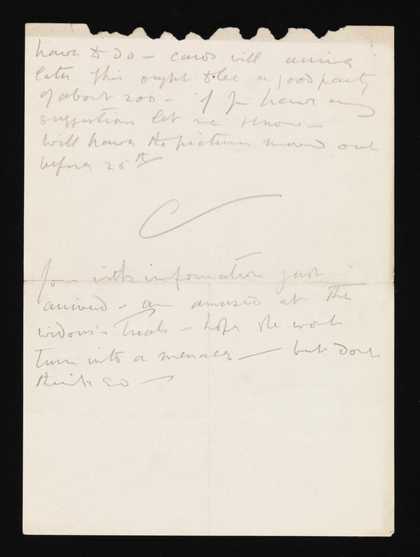 have to do – cards will arrive
later this ought to be a good party
of about 200 – if you have any
suggestions let me know –
Will have the pictures moved out
before 25th
C
Your with information just
arrived – am amused at the
widow's Trials – hope she wont
turn into a menace – but dont
think so –